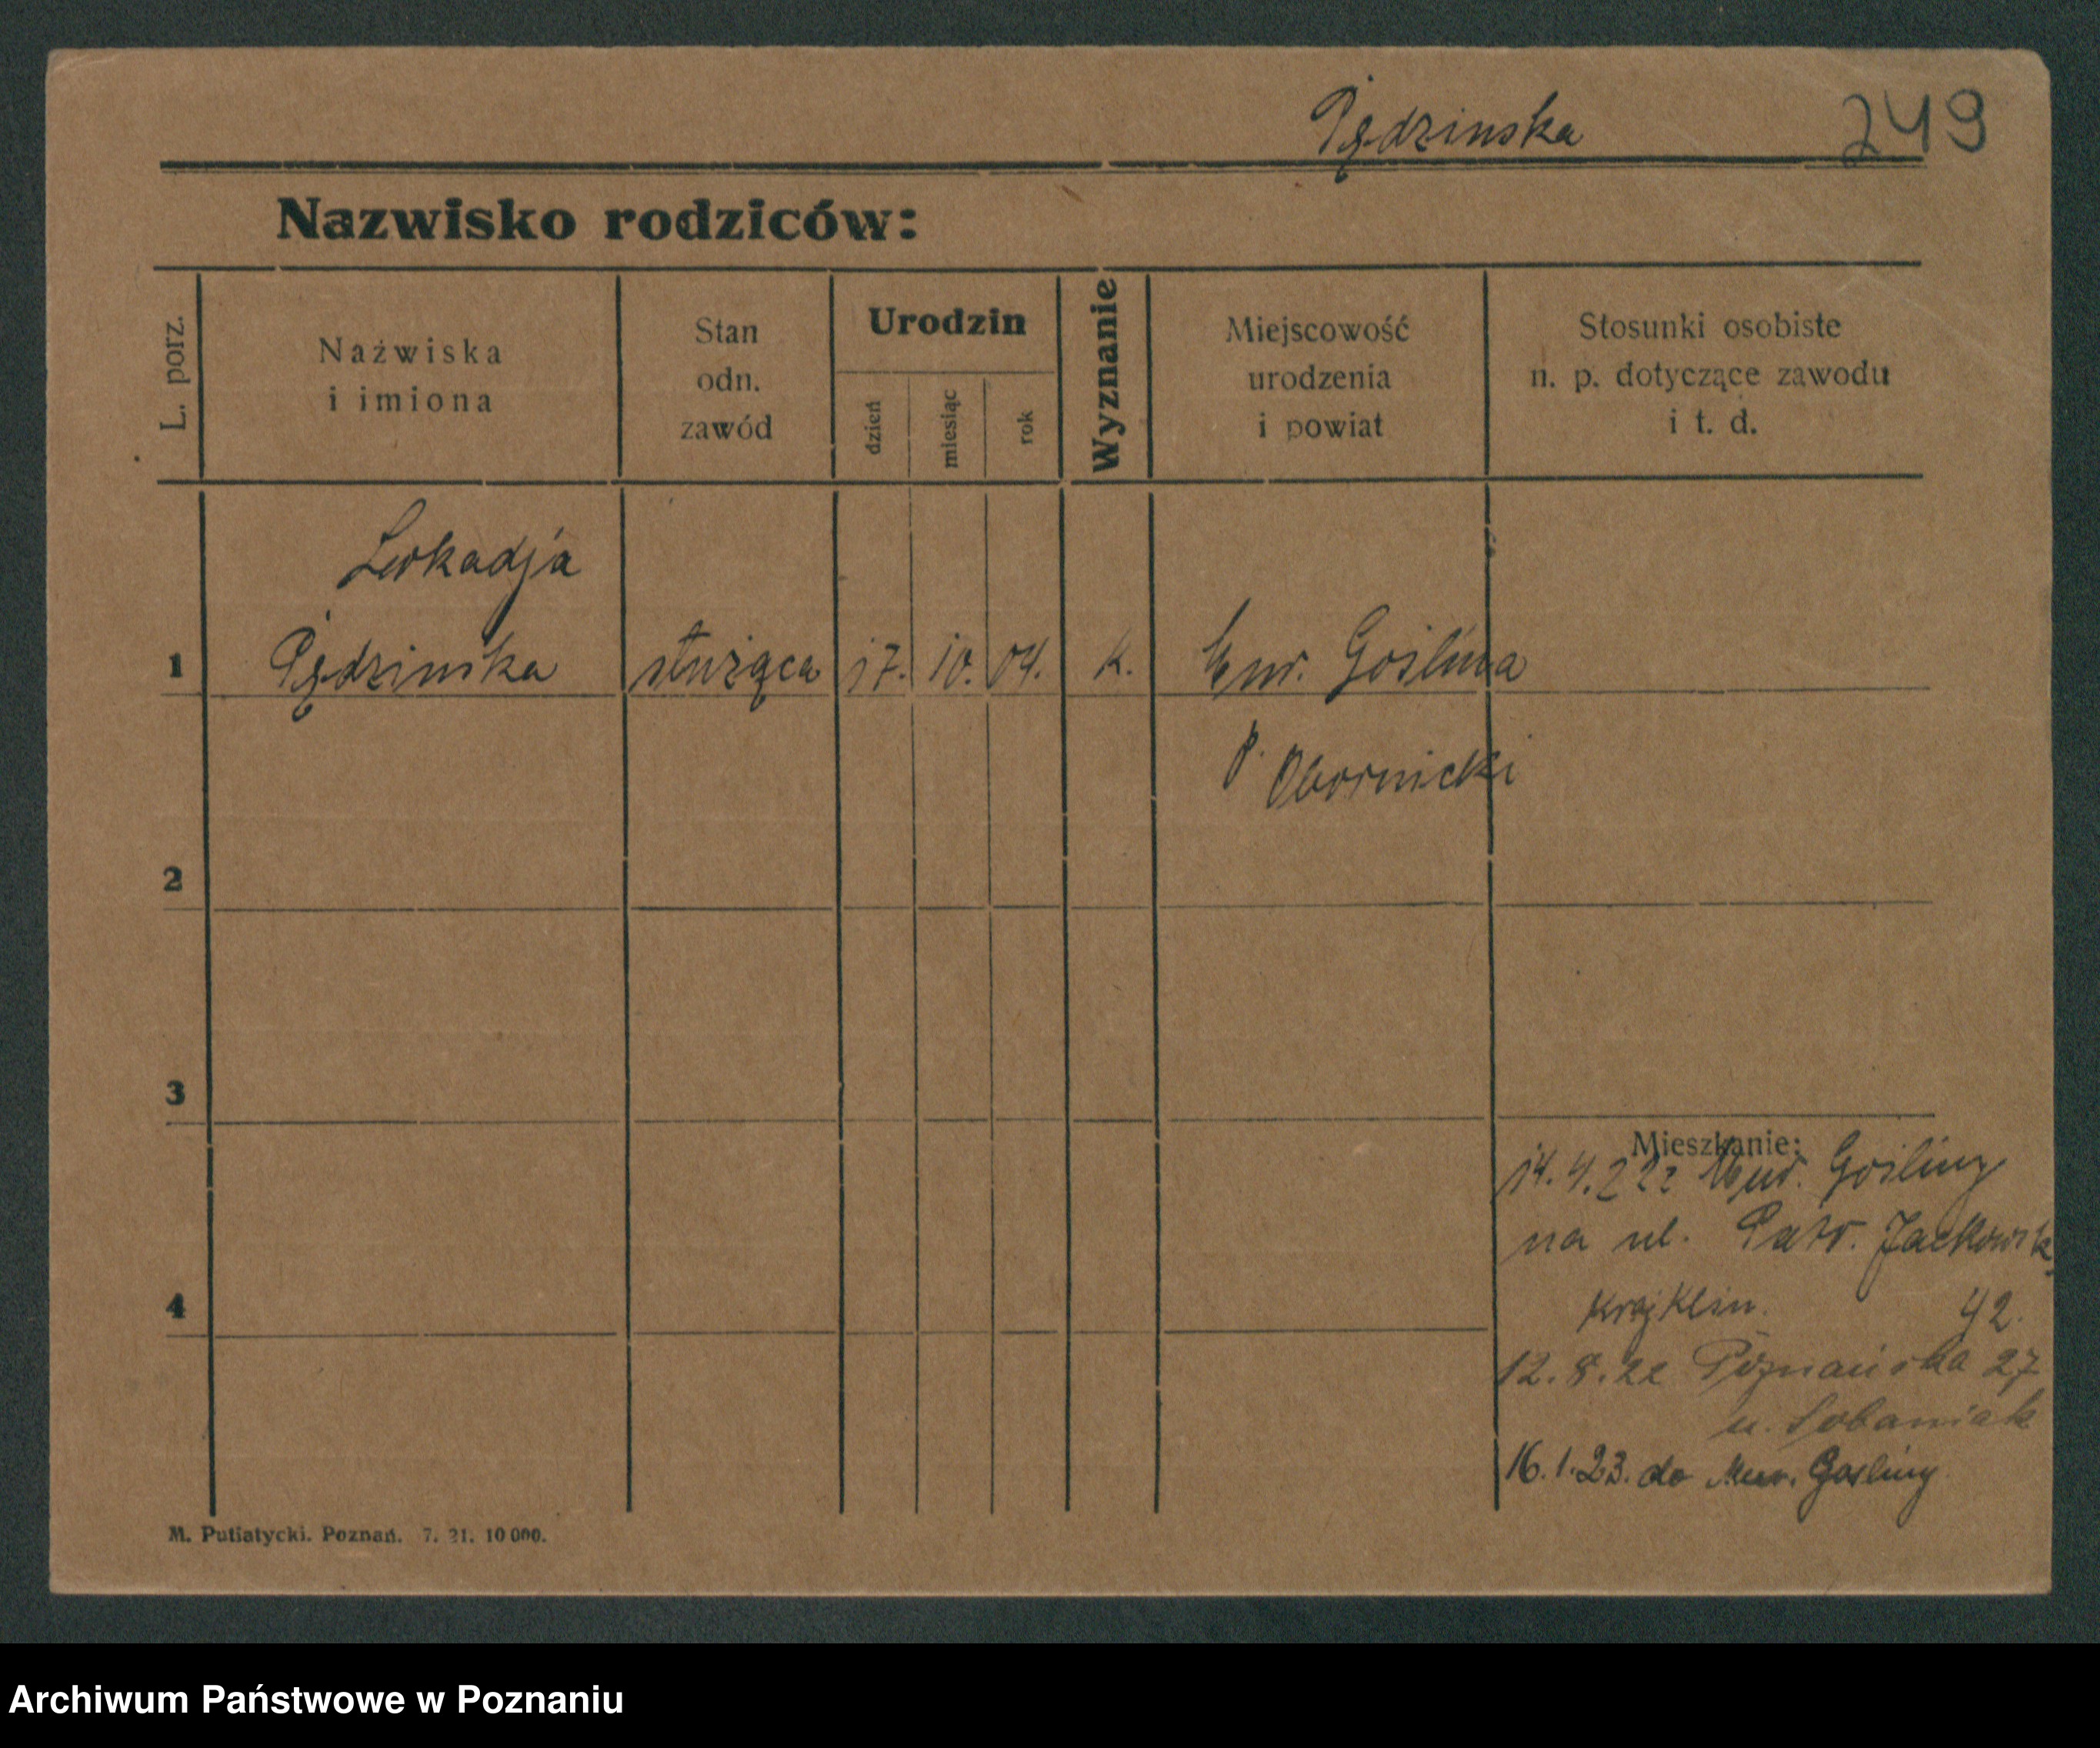 Pędzinska 249
Nazwisko rodziców:
L. porz.
Nazwiska
i imiona
Stan
odn.
zawód
Urodzin
dzień
miesiąc
rok
Wyznanie
Miejscowość
urodzenia
i powiat
Stosunki osobiste
n. p. dotyczące zawodu
i t. d.
Leokadja
1 Pędzinska służąca 17. 10. 04. k. Mur. Goślina
p. Obornicki
2
3
Mieszkanie:
14. 4. 22 z Mur. Gośliny
na ul. Patr. Jackowsk.
4
42.
12. 8. 22 Poznańska 27
u. Łobaniak
16. 1. 23. do Mur. Gosliny
M. Putiatycki. Poznań. 7. 21. 10 000.
Archiwum Państwowe w Poznaniu